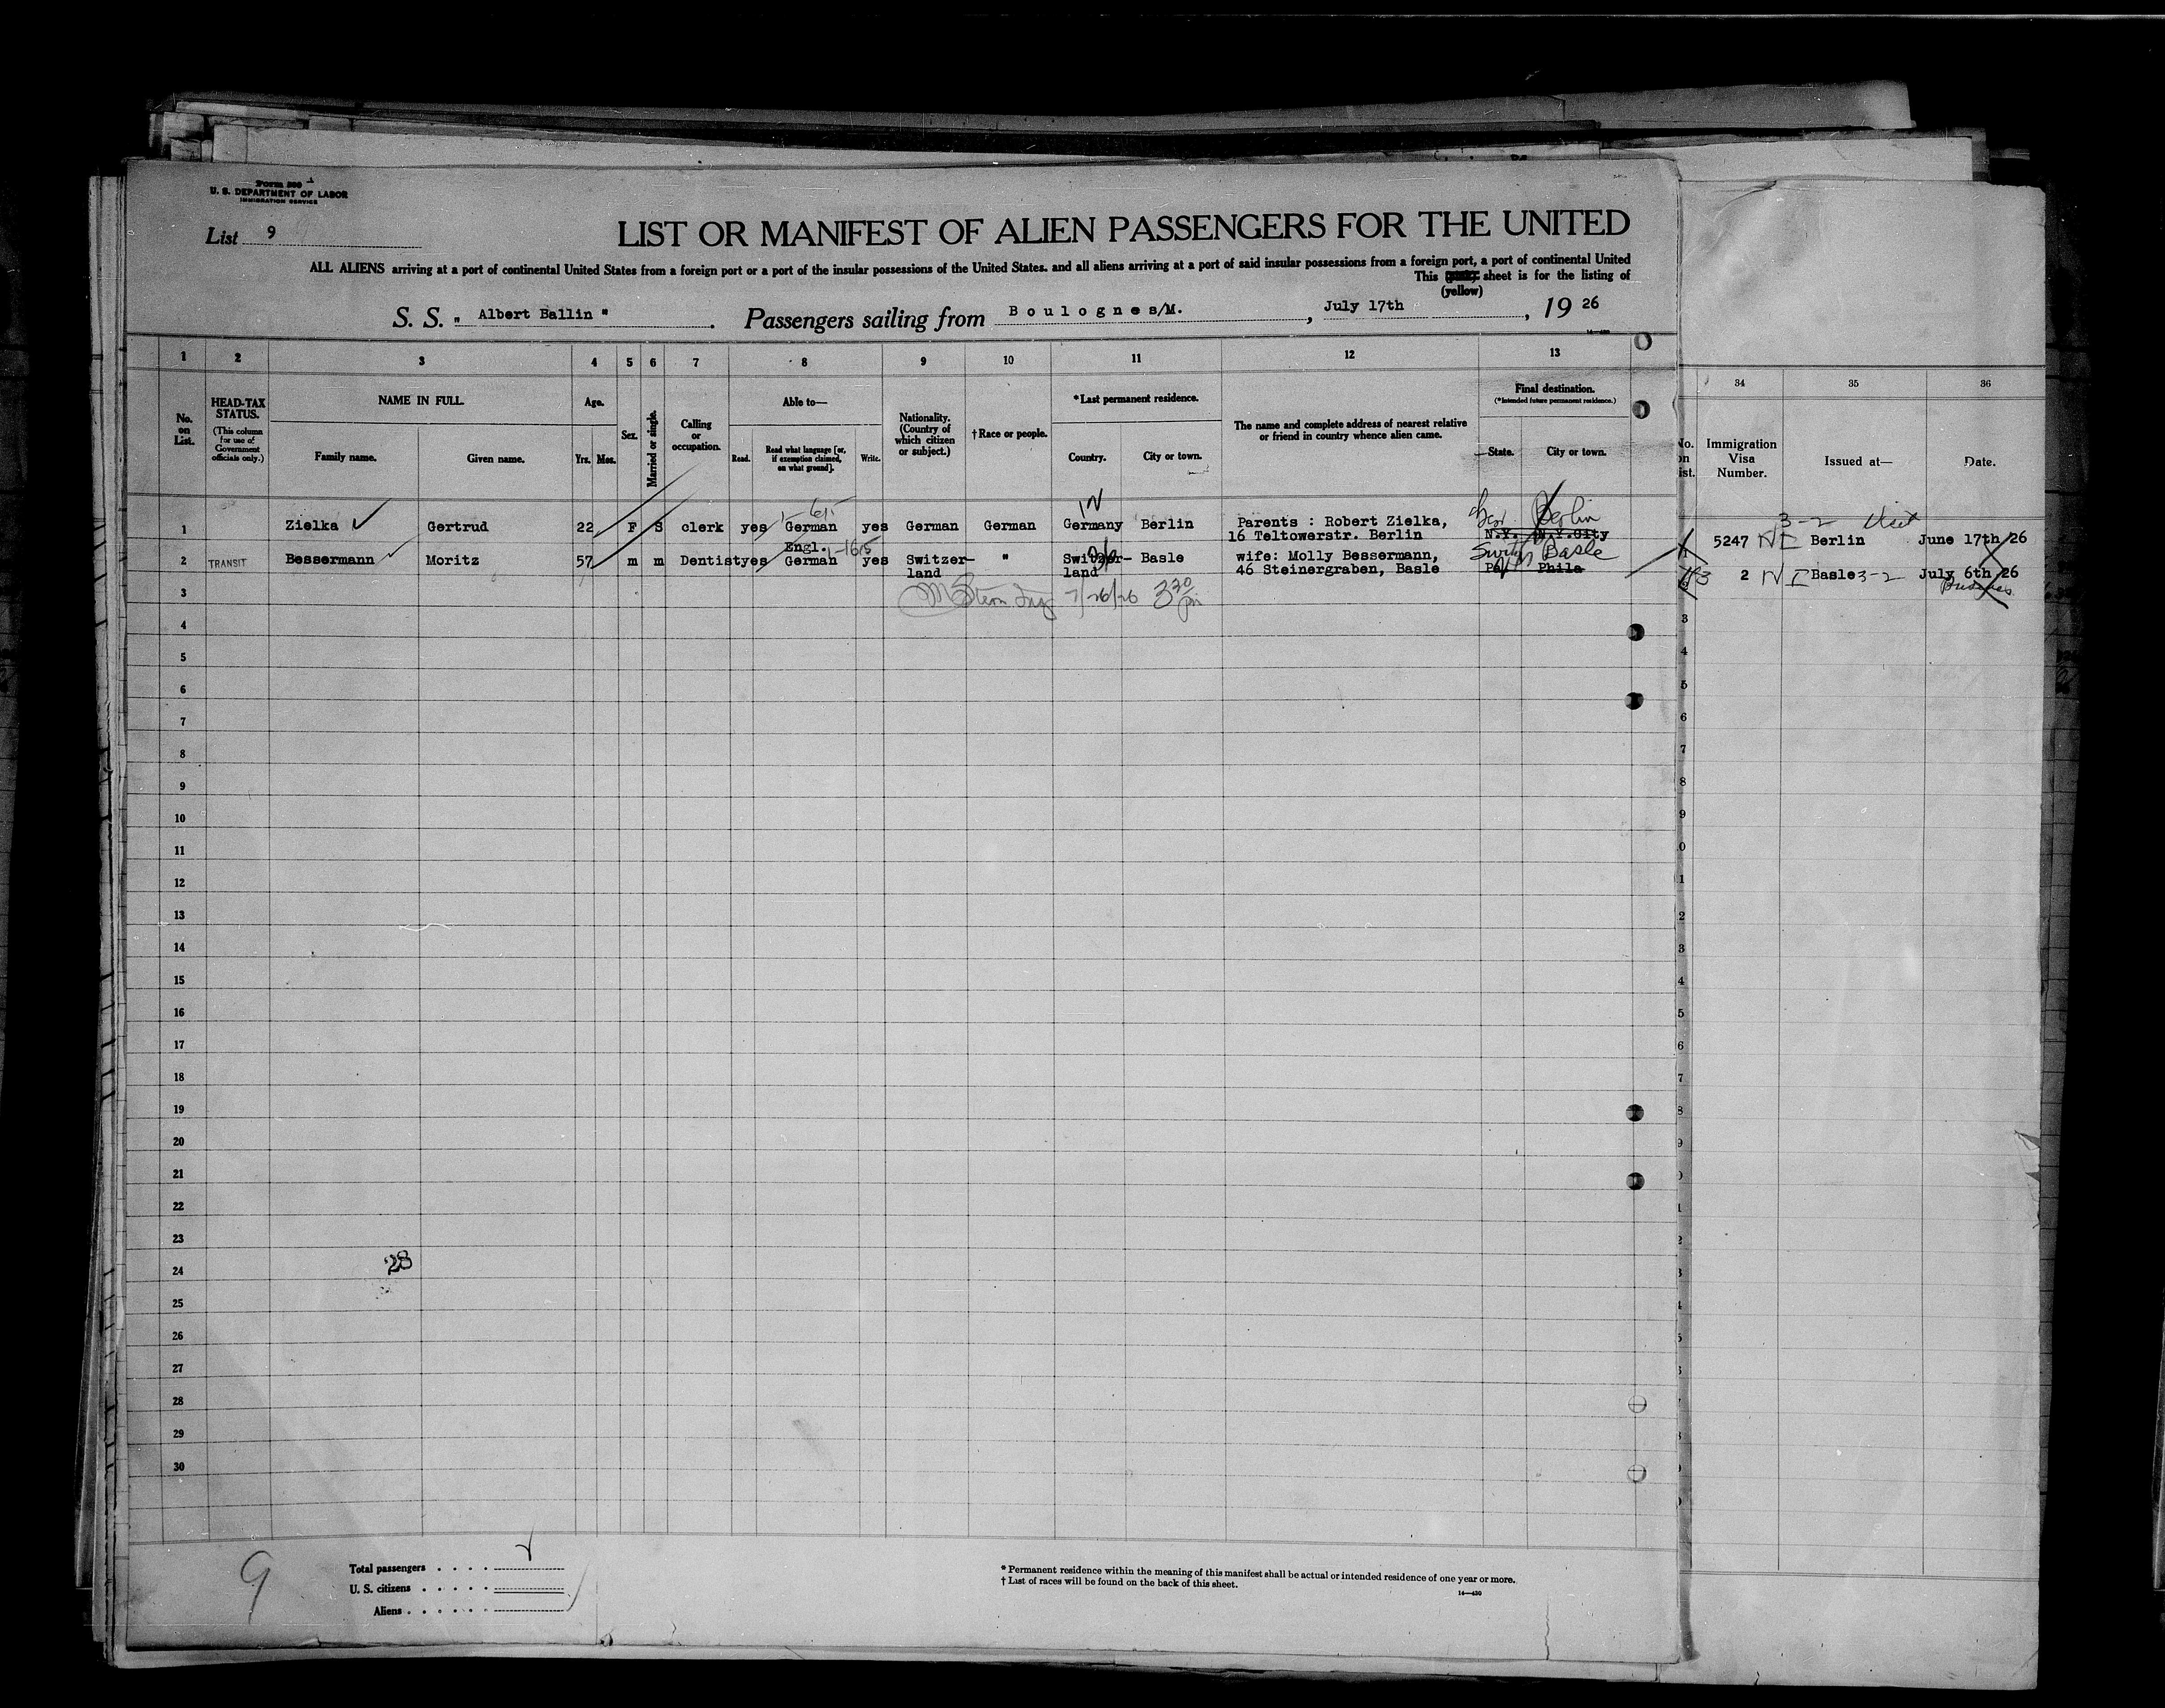 Form 500
U. S. DEPARTMENT OF LABOR
IMMIGRATION SERVICE
List 9
LIST OR MANIFEST OF ALIEN PASSENGERS FOR THE UNITED
ALL ALIENS arriving at a port of continental United States from a foreign port or a port of the insular possessions of the United States, and all aliens arriving at a port of said insular possessions from a foreign port, a port of continental United
This sheet is for the listing of
(yellow)
S. S. " Albert Ballin " . Passengers sailing from Boulogne s/M. , July 17th , 19 26
1 2 3 4 5 6 7 8 9 10 11 12 13
34 35 36
No. on List.
HEAD-TAX STATUS.
(This column for use of Government officials only.)
NAME IN FULL.
Family name. Given name.
Age.
Yrs. Mos.
Sex.
Married or single.
Calling or occupation.
Able to—
Read. Read what language [or, if exemption claimed, on what ground]. Write.
Nationality. (Country of which citizen or subject.)
†Race or people.
*Last permanent residence.
Country. City or town.
The name and complete address of nearest relative or friend in country whence alien came.
Final destination.
(*Intended future permanent residence.)
State. City or town.
No. on ist.
Immigration Visa Number.
Issued at—
Date.
1 Zielka Gertrud 22 F S clerk yes German yes German German Germany Berlin Parents : Robert Zielka, Berlin
16 Teltowerstr. Berlin N.Y. N.Y.City
3-2 Visit
5247 NI Berlin June 17th 26
Engl.
2 TRANSIT Bessermann Moritz 57 m m Dentist yes German yes Switzer- " Switzer- Basle wife: Molly Bessermann, Switz Basle
land land 46 Steinergraben, Basle Pa Phila
2 NI Basle 3-2 July 6th 26
Business
3 7/26/26 3 30 pm
4
5
6
7
8
9
10
11
12
13
14
15
16
17
18
19
20
21
22
23
24
25
26
27
28
29
30
28
9
Total passengers
U. S. citizens
Aliens
* Permanent residence within the meaning of this manifest shall be actual or intended residence of one year or more.
† List of races will be found on the back of this sheet.
14—430